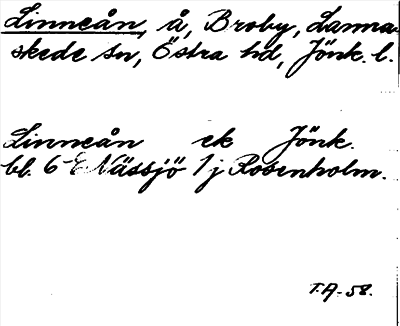 Linneån, å, Broby, Lanna-
skede sn, Östra hd, Jönk. l.
Linneån ek Jönk.
bl. 6 E Nässjö 1j Rosenholm.
T.A-58.